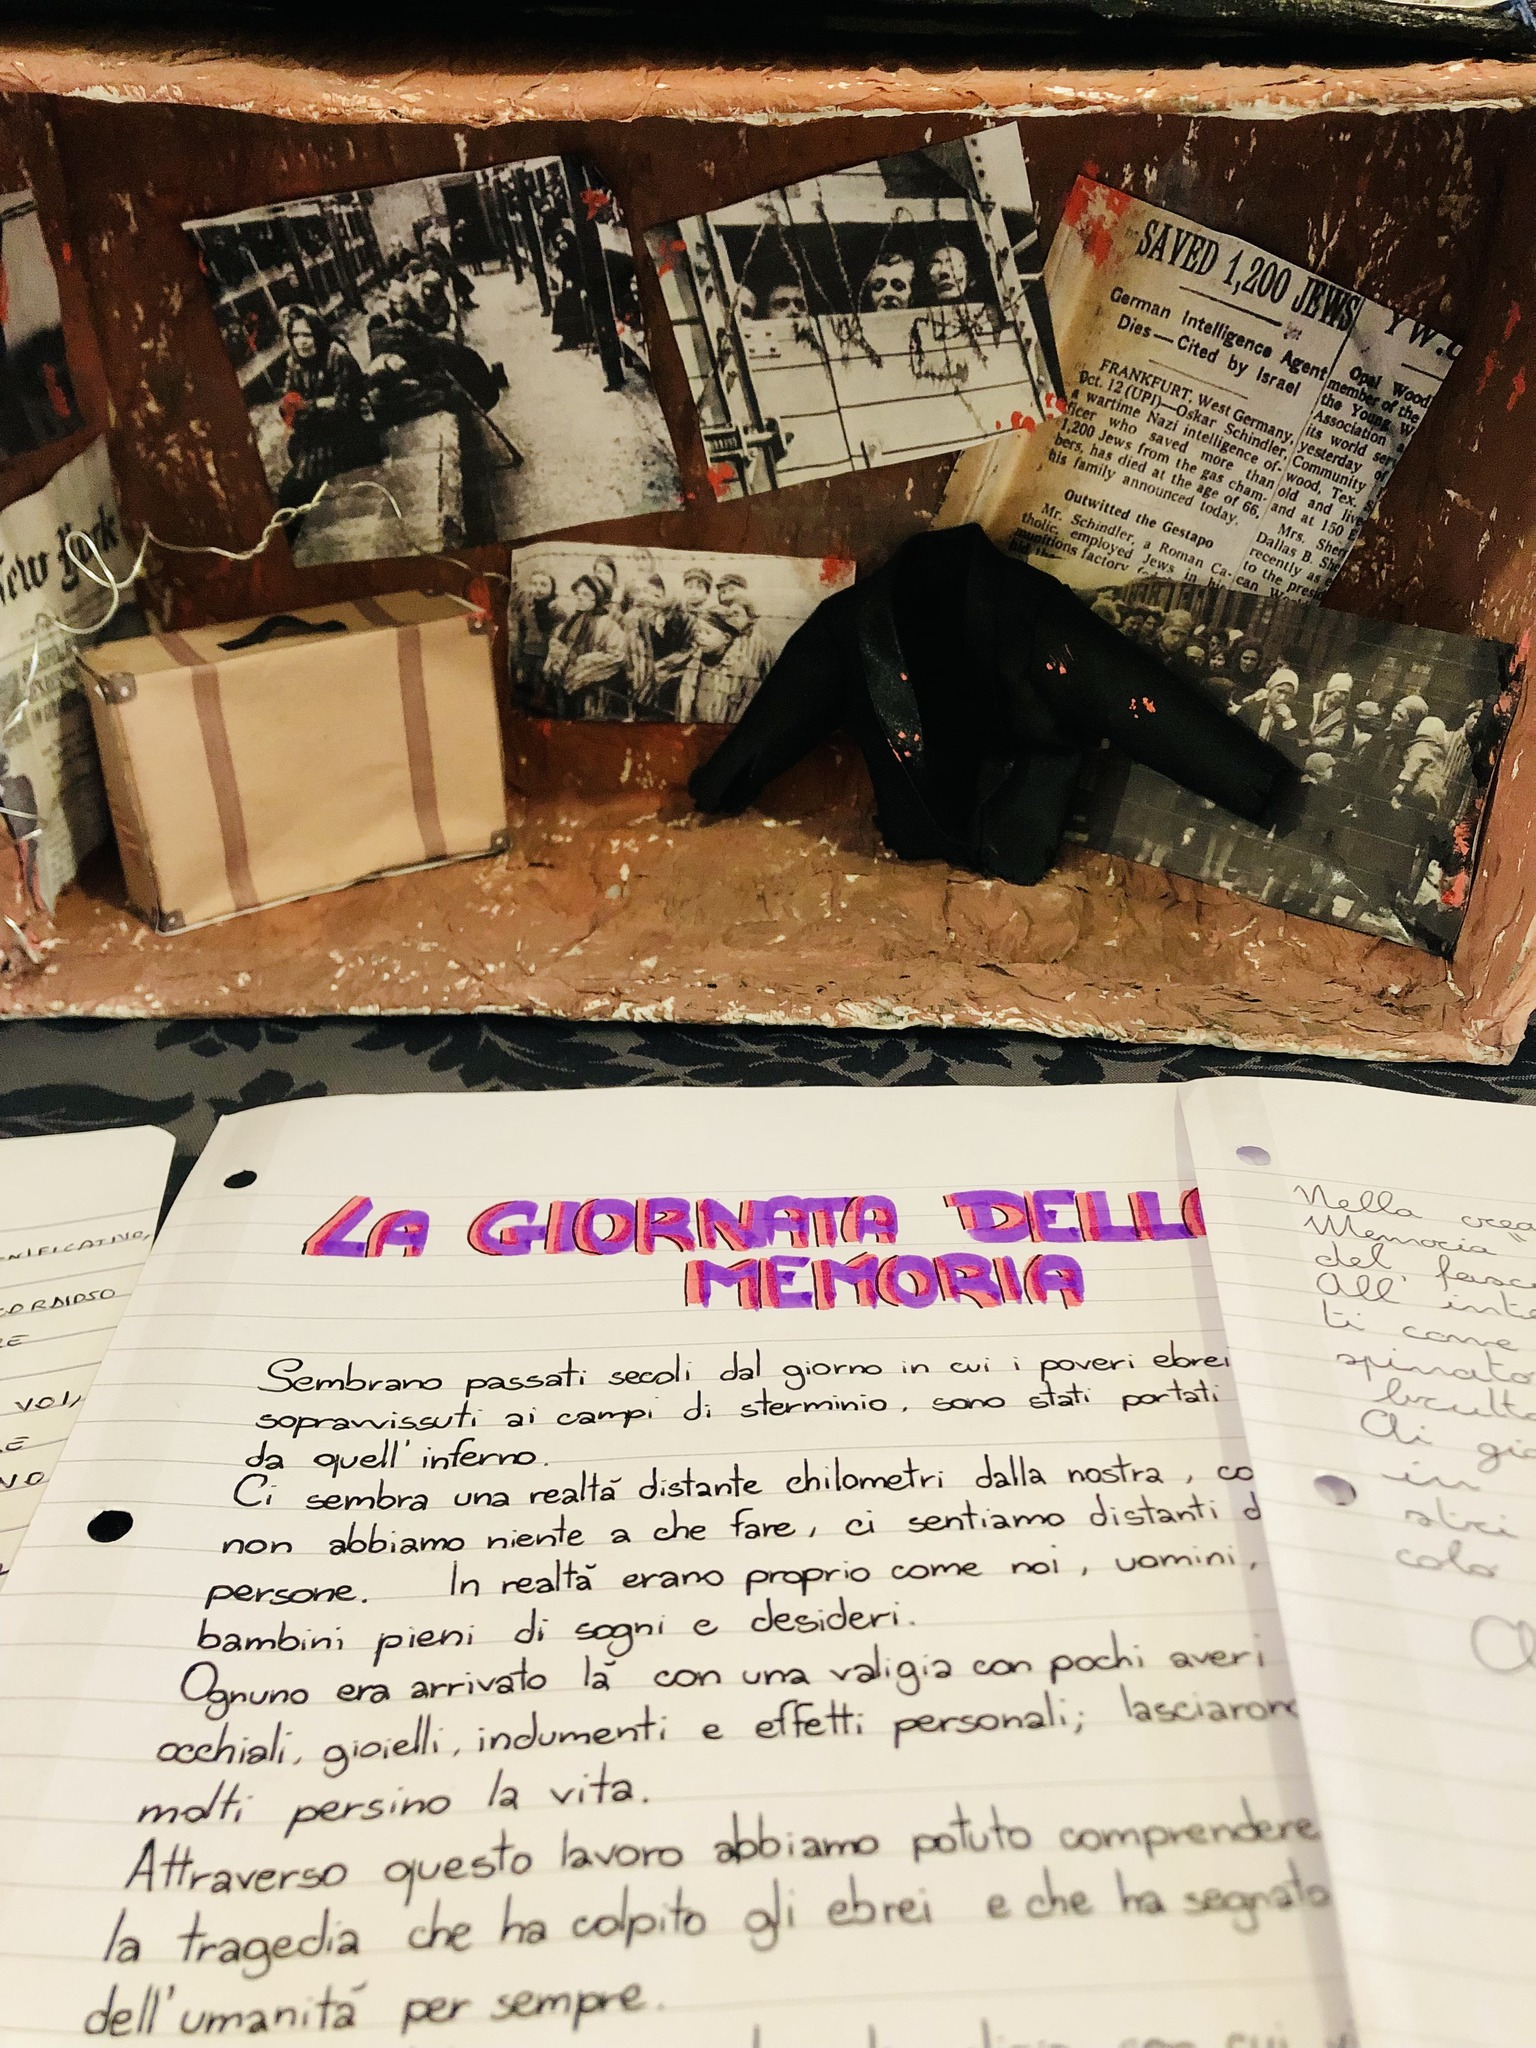 SAVED 1,200 JEWS
German Intelligence Agent
Dies—Cited by Israel
FRANKFURT, West Germany,
Oct. 12 (UPI)—Oskar Schindler,
a wartime Nazi intelligence of-
ficer who saved more than
1,200 Jews from the gas cham-
bers, has died at the age of 66,
his family announced today.
Outwitted the Gestapo
Mr. Schindler, a Roman Ca-
tholic, employed Jews in his
munitions factory
YW.
Opal Wood
member of the
the Young W
Association
its world ser
Community
yesterday of
wood, Tex.
old and live
and at 150 E
Mrs. Shep
Dallas B. She
recently as
to the presi
can
New York
LA GIORNATA DELLA
MEMORIA
Sembrano passati secoli dal giorno in cui i poveri ebrei
sopravvissuti ai campi di sterminio, sono stati portati
da quell'inferno.
Ci sembra una realtà distante chilometri dalla nostra, co
non abbiamo niente a che fare, ci sentiamo distanti d
persone. In realtà erano proprio come noi, uomini,
bambini pieni di sogni e desideri.
Ognuno era arrivato là con una valigia con pochi averi
occhiali, gioielli, indumenti e effetti personali; lasciarono
molti persino la vita.
Attraverso questo lavoro abbiamo potuto comprendere
la tragedia che ha colpito gli ebrei e che ha segnato
dell'umanità per sempre.
con cui
NIFICATIVO,
VO
Nella crea
Memoria
del fasc
All' inte
ti come
spinato
Ai gio
in
altri
colo